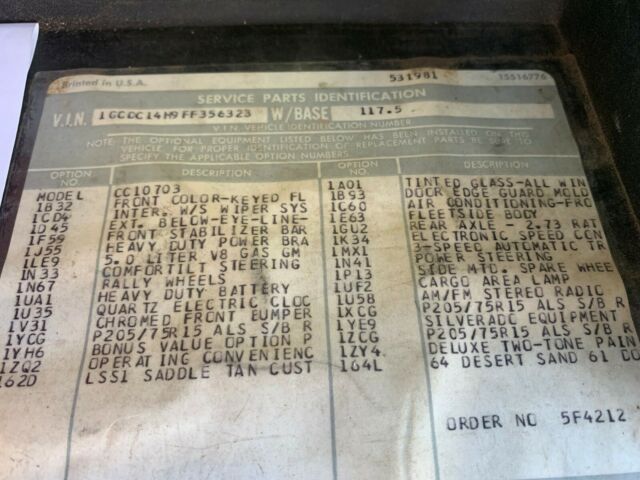 Printed in U.S.A. 531981 15516776
SERVICE PARTS IDENTIFICATION
V.I.N. 1GCDC14H9FF356323 W/BASE 117.5
V.I.N. VEHICLE IDENTIFICATION NUMBER
NOTE: THE OPTIONAL EQUIPMENT LISTED BELOW HAS BEEN INSTALLED ON THIS
VEHICLE. FOR PROPER IDENTIFICATION OF REPLACEMENT PARTS BE SURE TO
SPECIFY THE APPLICABLE OPTION NUMBERS.
OPTION NO DESCRIPTION OPTION NO. DESCRIPTION
MODEL CC10703 1A01 TINTED GLASS-ALL WIN
1B32 FRONT COLOR-KEYED FL 1B93 DOOR EDGE GUARD MOLD
1CD4 INTER. W/S WIPER SYS 1C60 AIR CONDITIONING-FRO
1D45 EXT. BELOW-EYE-LINE- 1E63 FLEETSIDE BODY
1F59 FRONT STABILIZER BAR 1GU2 REAR AXLE - 2.73 RAT
1J55 HEAVY DUTY POWER BRA 1K34 ELECTRONIC SPEED CON
1LE9 5.0 LITER V8 GAS GM 1MX1 3-SPEED AUTOMATIC TR
1N33 COMFORTILT STEERING 1N41 POWER STEERING
1N67 RALLY WHEELS 1P13 SIDE MTD. SPARE WHEE
1UA1 HEAVY DUTY BATTERY 1UF2 CARGO AREA LAMP
1U35 QUARTZ ELECTRIC CLOC 1U58 AM/FM STEREO RADIO
1V31 CHROMED FRONT BUMPER 1XCG P205/75R15 ALS S/B R
1YCG P205/75R15 ALS S/B R 1YE9 SILVERADO EQUIPMENT
1YH6 BONUS VALUE OPTION P 1ZCG P205/75R15 ALS S/B R
1ZQ2 OPERATING CONVENIENC 1ZY4 DELUXE TWO-TONE PAIN
162D LSS1 SADDLE TAN CUST 164L 64 DESERT SAND 61 DO
ORDER NO 5F4212